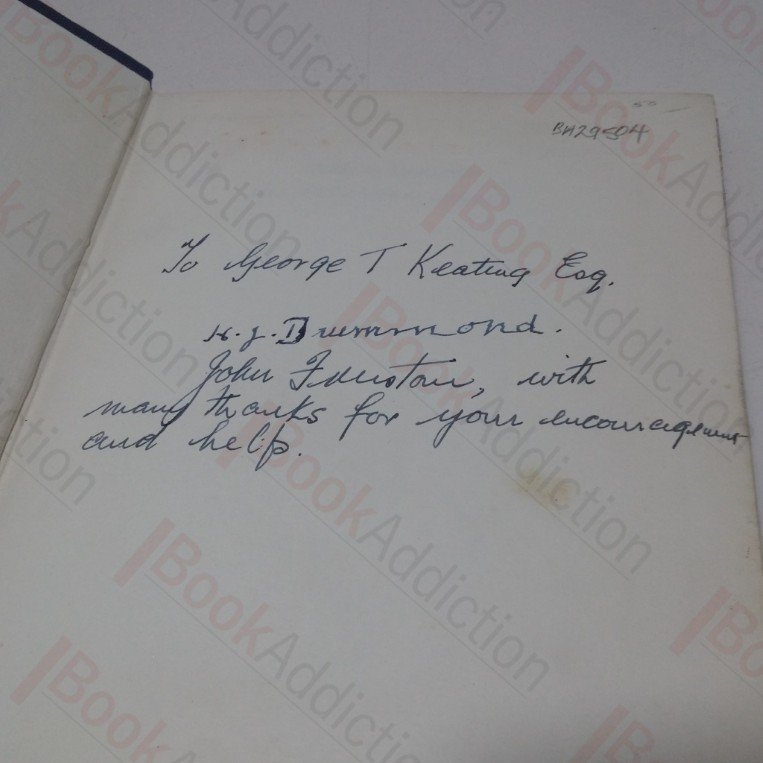 BH29504
To George T Keating Esq.
H. J. Drummond.
John with
many thanks for your encouragement
and help.
BookAddiction
BookAddiction
BookAddiction
BookAddiction
BookAddiction
BookAddiction
BookAddiction